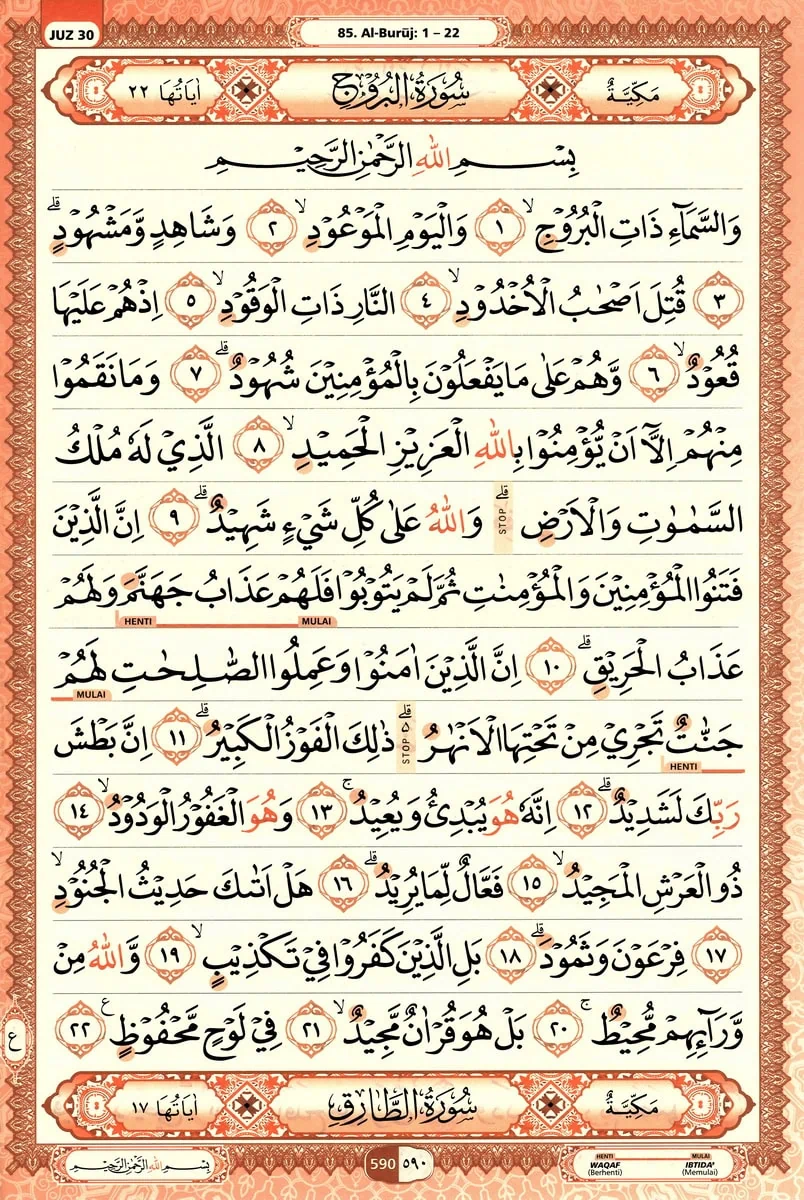 JUZ 30
85. Al-Burūj: 1 – 22
مَكِّيَّةٌ سُوْرَةُ الْبُرُوْجِ اٰيَاتُهَا ٢٢
بِسْمِ اللّٰهِ الرَّحْمٰنِ الرَّحِيْمِ
وَالسَّمَاۤءِ ذَاتِ الْبُرُوْجِۙ ١ وَالْيَوْمِ الْمَوْعُوْدِۙ ٢ وَشَاهِدٍ وَّمَشْهُوْدٍۗ
٣ قُتِلَ اَصْحٰبُ الْاُخْدُوْدِۙ ٤ النَّارِ ذَاتِ الْوَقُوْدِۙ ٥ اِذْ هُمْ عَلَيْهَا
قُعُوْدٌۙ ٦ وَّهُمْ عَلٰى مَا يَفْعَلُوْنَ بِالْمُؤْمِنِيْنَ شُهُوْدٌۗ ٧ وَمَا نَقَمُوْا
مِنْهُمْ اِلَّآ اَنْ يُّؤْمِنُوْا بِاللّٰهِ الْعَزِيْزِ الْحَمِيْدِۙ ٨ الَّذِيْ لَهٗ مُلْكُ
السَّمٰوٰتِ وَالْاَرْضِۗ STOP وَاللّٰهُ عَلٰى كُلِّ شَيْءٍ شَهِيْدٌۗ ٩ اِنَّ الَّذِيْنَ
فَتَنُوا الْمُؤْمِنِيْنَ وَالْمُؤْمِنٰتِ ثُمَّ لَمْ يَتُوْبُوْا فَلَهُمْ عَذَابُ جَهَنَّمَ وَلَهُمْ
MULAI HENTI
عَذَابُ الْحَرِيْقِۗ ١٠ اِنَّ الَّذِيْنَ اٰمَنُوْا وَعَمِلُوا الصّٰلِحٰتِ لَهُمْ
MULAI
جَنّٰتٌ تَجْرِيْ مِنْ تَحْتِهَا الْاَنْهٰرُ ەۗ STOP ذٰلِكَ الْفَوْزُ الْكَبِيْرُۗ ١١ اِنَّ بَطْشَ
HENTI
رَبِّكَ لَشَدِيْدٌۗ ١٢ اِنَّهٗ هُوَ يُبْدِئُ وَيُعِيْدُۚ ١٣ وَهُوَ الْغَفُوْرُ الْوَدُوْدُۙ ١٤
ذُو الْعَرْشِ الْمَجِيْدُۙ ١٥ فَعَّالٌ لِّمَا يُرِيْدُۗ ١٦ هَلْ اَتٰىكَ حَدِيْثُ الْجُنُوْدِۙ
١٧ فِرْعَوْنَ وَثَمُوْدَۗ ١٨ بَلِ الَّذِيْنَ كَفَرُوْا فِيْ تَكْذِيْبٍۙ ١٩ وَّاللّٰهُ مِنْ
وَّرَاۤىِٕهِمْ مُّحِيْطٌۚ ٢٠ بَلْ هُوَ قُرْاٰنٌ مَّجِيْدٌۙ ٢١ فِيْ لَوْحٍ مَّحْفُوْظٍࣖ ٢٢
ع
مَكِّيَّةٌ سُوْرَةُ الطَّارِقِ اٰيَاتُهَا ١٧
بِسْمِ اللّٰهِ الرَّحْمٰنِ الرَّحِيْمِ
590 ٥٩٠
HENTI MULAI
WAQAF IBTIDA'
(Berhenti) (Memulai)